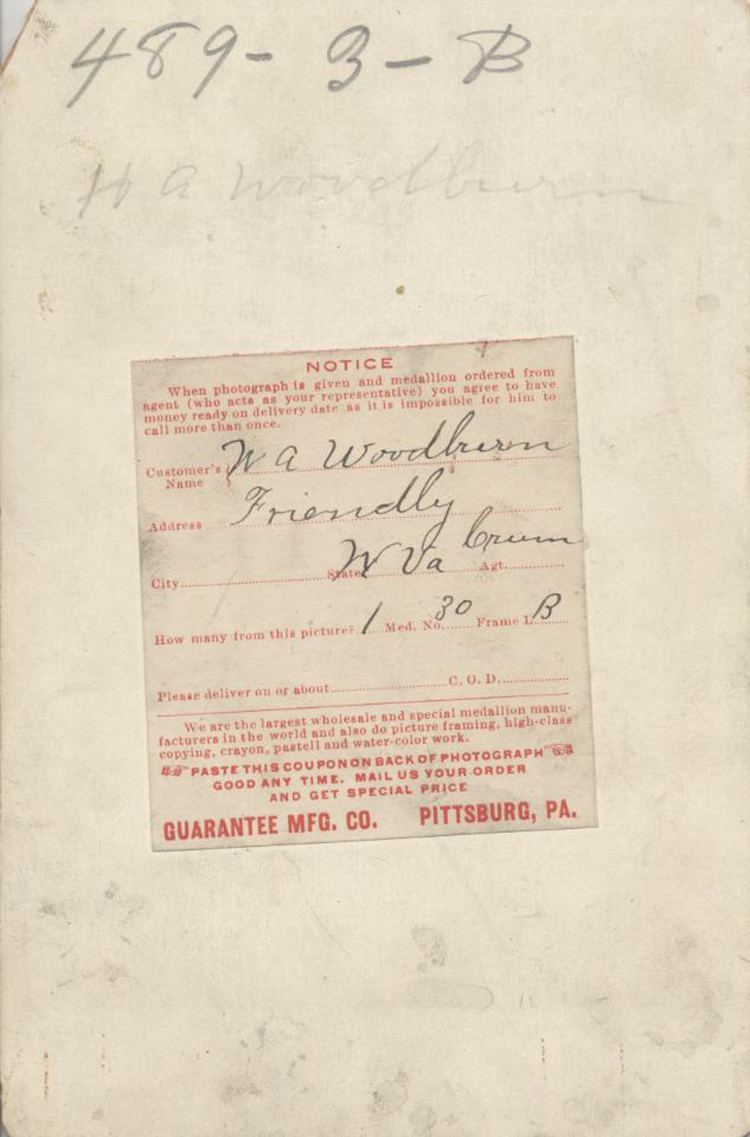 489-3-B
W A Woodburn
NOTICE
When photograph is given and medallion ordered from
agent (who acts as your representative) you agree to have
money ready on delivery date as it is impossible for him to
call more than once.
Customer's Name { W A Woodburn
Address Friendly
City State W Va Agt. Crum
How many from this picture? 1 Med. No. 30 Frame L B
Please deliver on or about C. O. D.
We are the largest wholesale and special medallion manu-
facturers in the world and also do picture framing, high-class
copying, crayon, pastell and water-color work.
PASTE THIS COUPON ON BACK OF PHOTOGRAPH
GOOD ANY TIME. MAIL US YOUR ORDER
AND GET SPECIAL PRICE
GUARANTEE MFG. CO. PITTSBURG, PA.